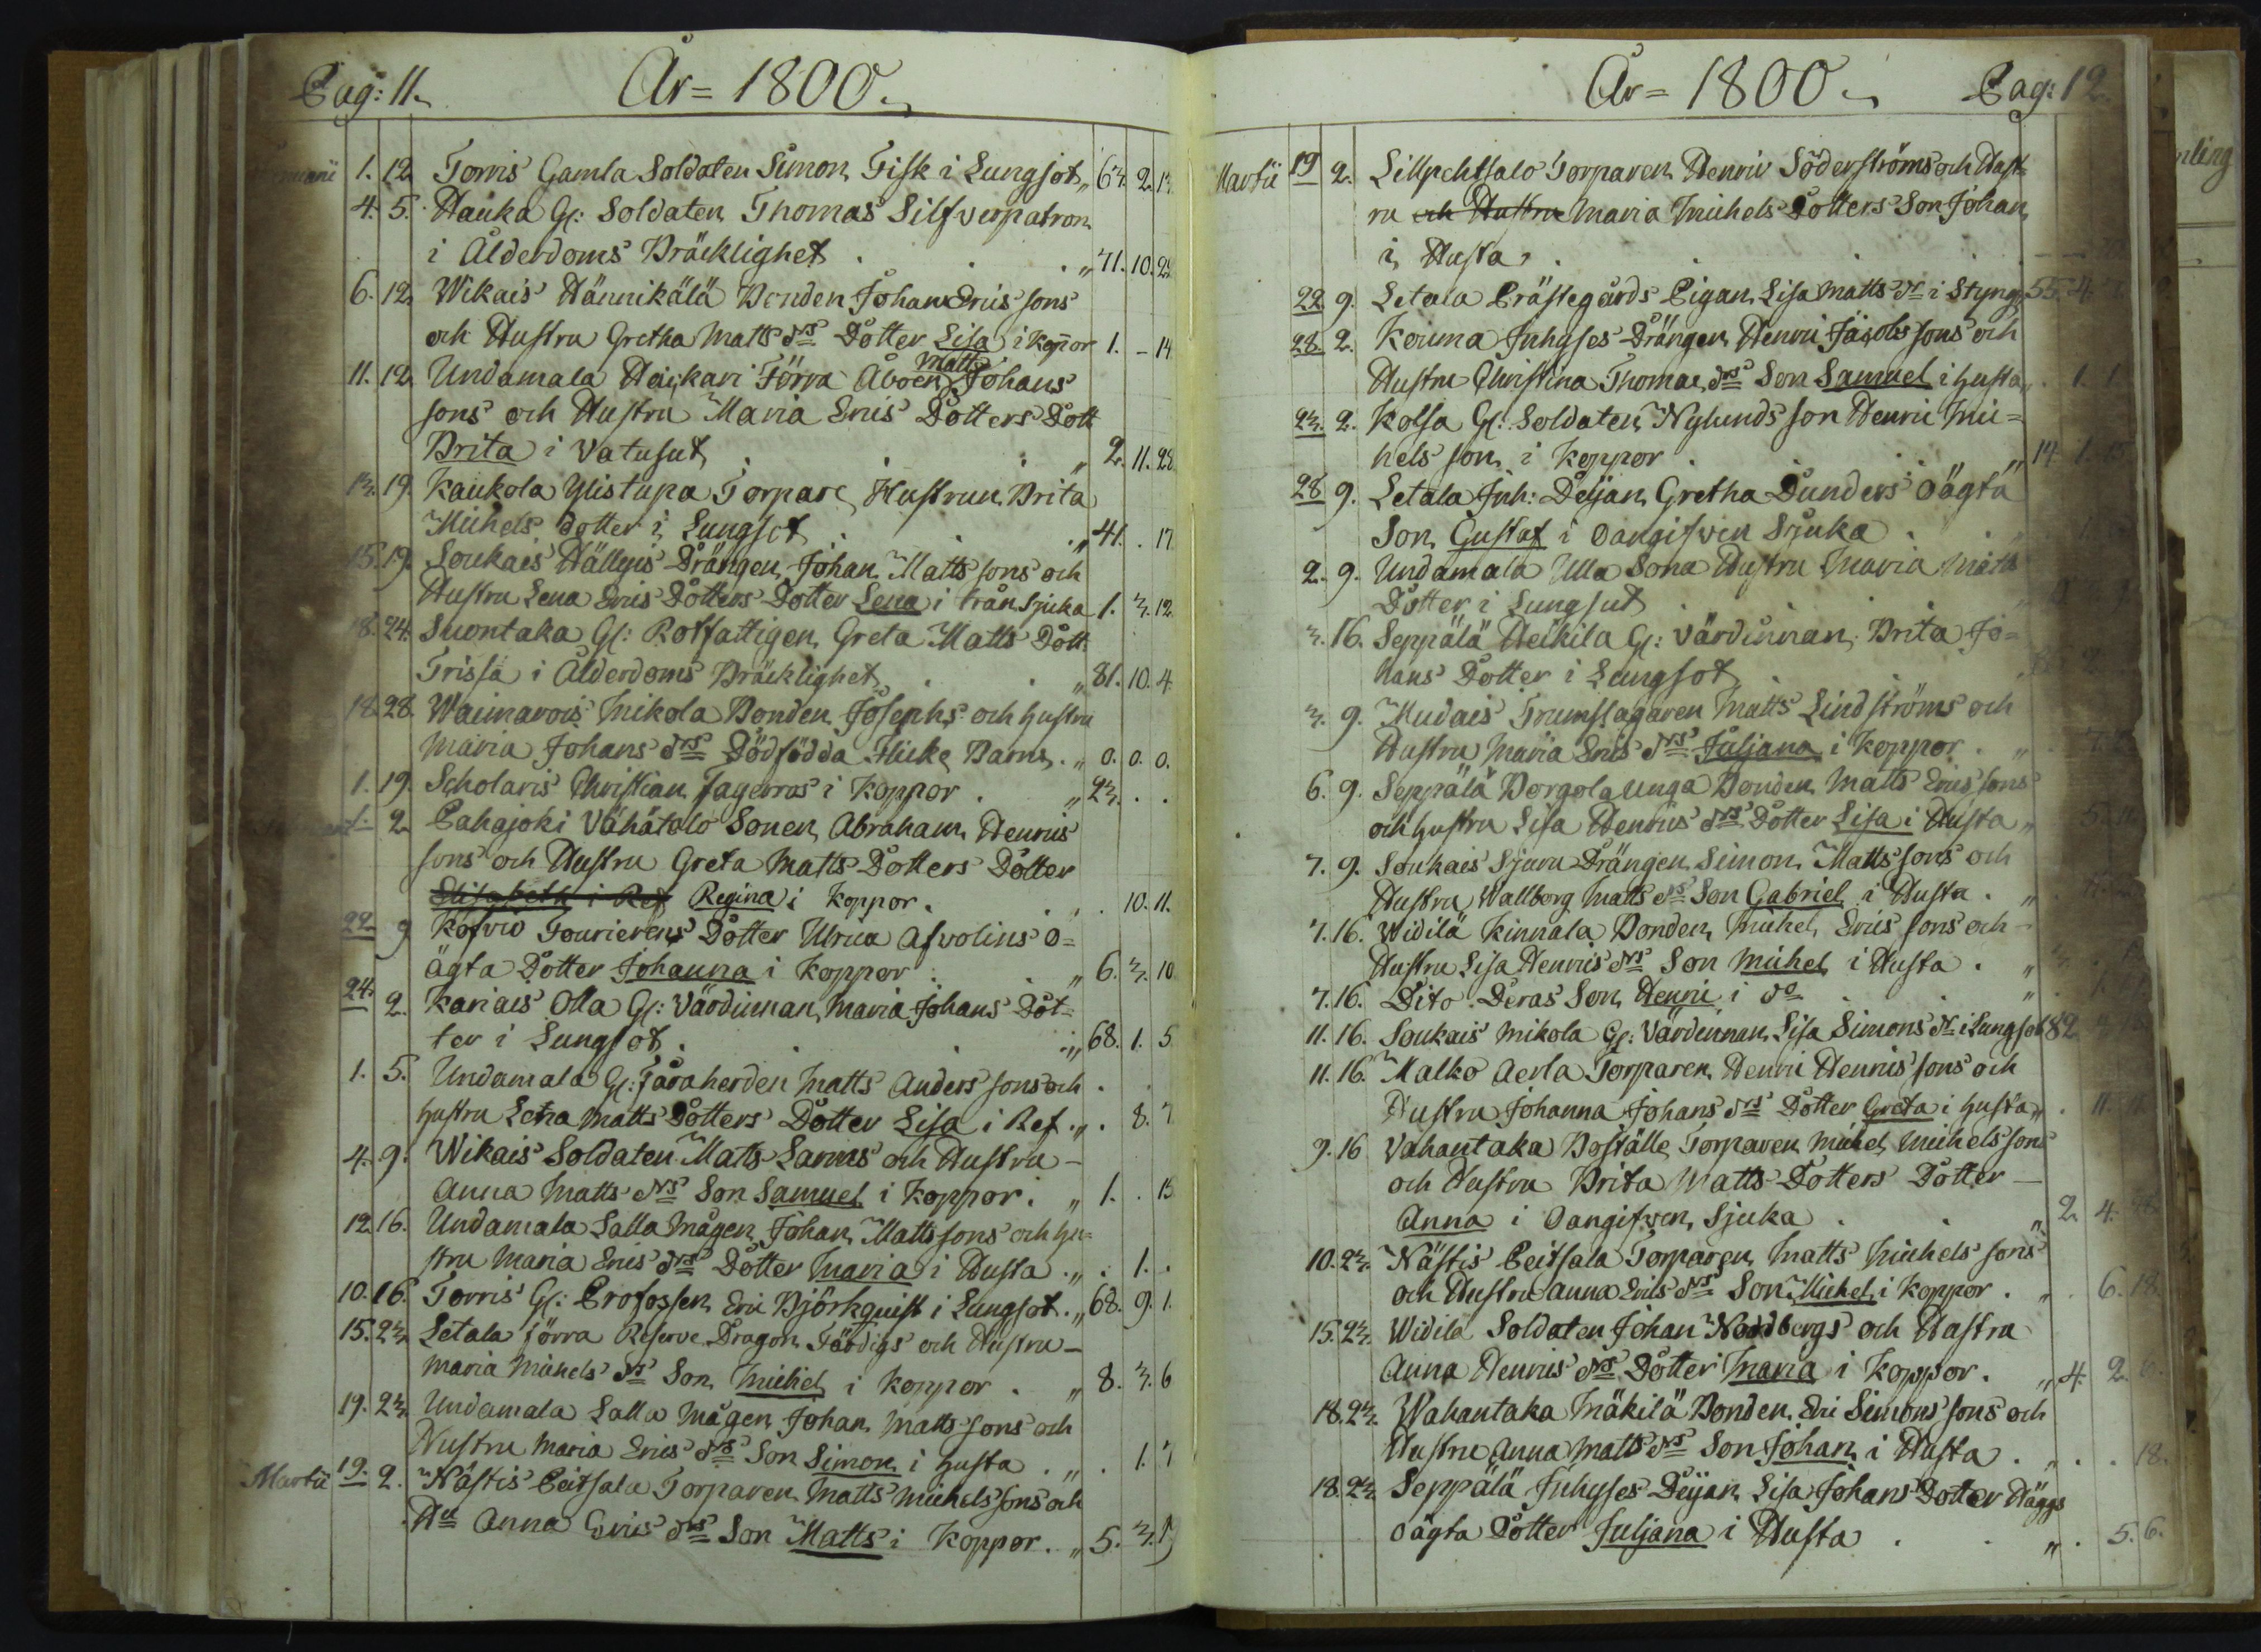 Pag: 11.
År = 1800.
1. 12. Torris Gamla Soldaten Simon Fisk i Lungsot „ 63. 2. 13.
4. 5. Hauka Gl: Soldaten Thomas Silfverpatron
i Ålderdoms Bräcklighet . . „ 71. 10. 28
6. 12. Wikais Hännikälä Bonden Johan Erics sons
och Hustru Gretha Matts drs Dotter Lisa i Koppor 1. - 14
11. 12. Undamala Heickari Förra Åboen Matts Johans
sons och Hustru Maria Erics Dotters Dott
Brita i Vatusut . . „ 2. 11. 28.
13. 19. Kaukola Ylistupa Torpare Hustrun Brita
Michels dotter i Lungsot . . „ 41. . 17
15. 19. Soukais Hällfors Drängen Johan Matts sons och
Hustru Lena Erics Dotters Dotter Lena i Trånsjuka 1. 3. 12
18. 24. Suontaka Gl: Rotfattigen Greta Matts Dott.
Trissa i Ålderdoms Bräcklighet . . „ 81. 10. 4.
18. 28. Waimarois Mikola Bonden Josephs och hustru
Maria Johans drs Dödfödda Flicke Barn . „ 0. 0. 0.
1. 19. Scholaris Christian Fagerros i Koppor . „ 23. . .
2. Pahajoki Vähätalo Sonen Abraham Henrics
sons och Hustru Greta Matts Dotters Dotter
Elisabeth i Ref Regina i Koppor . „ . 10. 11.
22. 9 Kofvio Fourierens Dotter Ulrica Afvolins O=
ägta Dotter Johanna i Koppor . . „ 6. 3. 10
24. 2. Kariais Olla Gl: Värdinnan Maria Johans Dot=
ter i Lungsot . . . „ 68. 1. 5
1. 5. Undamala Gl: Fåraherden Matts Anders sons och . .
hustru Lena Matts Dotters Dotter Lisa i Ref . „ . 8. 7
4. 9. Wikais Soldaten Matts Larms och Hustru -
Anna Matts drs Son Samuel i Koppor . „ 1. . 15
12. 16. Undamala Salla Mågen Johan Matts sons och hu=
stru Maria Erics drs Dotter Maria i Husta . „ . 1. .
10. 16. Torris Gl: Profossen Eric Björkquist i Lungsot . „ 68. 9. 1.
15. 23. Letala förra Reserve Dragon Färdigs och Hustru -
Maria Michels drs Son Michel i Koppor . „ 8. 3. 6
19. 23. Undamala Salla Mågen Johan Matts sons och
Hustru Maria Erics drs Son Simon i husta . „ . 1. 7
Martii 19. 2. Nästis Peitsala Torparen Matts Michels sons och
Hu Anna Erics drs Son Matts i Koppor . „ 5. 3. 19
År = 1800.
Pag: 12.
Martii 19 2. Lillpehtsalo Torparen Henric Söderströms och Hust=
ru och Hustru Maria Michels Dotters Son Johan
i Husta .
22 9. Letala Prästegårds Pigan Lisa Matts dr i Styng 55. 4.
28. 2. Kouma Inhyses Drängen Henric Jacobs sons och
Hustru Christina Thomae drs Son Samuel i husta „ . 1. 1
23. 2. Kolsa Gl: Soldaten Nylunds son Henric Mic=
hels son i Koppor . . „ 14 1. 15
28 9. Letala Inh: Dejan Gretha Dunders oägta
Son Gustaf i Oangifven Sjuka . . „ 1.
2. 9. Undamala Ulla Sona Hustru Maria Matts
Dotter i Lungsut . . „
3. 16. Seppälä Heikila Gl: Värdinnan Brita Jo=
hans Dotter i Lungsot .
3. 9. Mudais Trumslagaren Matts Lindströms och
Hustru Maria Erics drs Juljana i Koppor . „ . 7.
6. 9. Seppälä Porgola unga Bonden Matts Erics sons
och hustru Lisa Henrics drs Dotter Lisa i Husta „ 5. 11
7. 9. Soukais Sjura Drängen Simon Matts sons och
Hustru Wallborg Matts drs Son Gabriel i Husta . „
7. 16. Widilä Kinnala Bonden Michel Erics sons och -
Hustru Lisa Henrics drs Son Michel i Husta . „ 3.
7. 16. Dito. Deras Son Henric i do . . „
11. 16. Soukais Mikola Gl: Värdinnan Lisa Simons dr i Lungsot 82 4. 18
11. 16. Malko Aerla Torparen Henric Henrics sons och
Hustru Johanna Johans drs Dotter Greta i husta „ . 11.
9. 16 Vahantaka Boställe Torparen Michel Michels sons
och Hustru Brita Matts Dotters Dotter -
Anna i Oangifven Sjuka . . „ 2 4.
10. 23. Nästis Peitsala Torparen Matts Michels sons
och Hustru Anna Erics drs Son Michel i Koppor . „ . 6. 18.
15. 23. Widilä Soldaten Johan Nordbergs och Hustru
Anna Henrics drs Dotter Maria i Koppor . „ 4. 2. 6.
18. 23. Wahantaka Mäkilä Bonden Eric Simons sons och
Hustru Anna Matts drs Son Johan i Husta . „ . . 18.
18. 23. Seppälä Inhyses Deijan Lisa Johans Dotter Häggs
oägta Dotter Juljana i Husta . . „ . 5. 6.